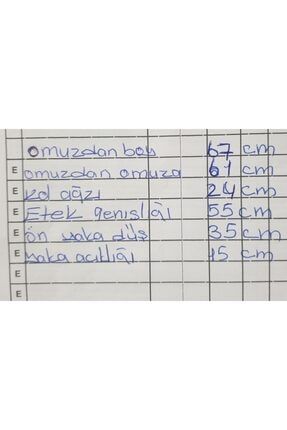 omuzdan boy 67 cm
E omuzdan omuza 61 cm
E kol ağzı 24 cm
E Etek genişlği 55 cm
E ön yaka düş 35 cm
E yaka açıklığı 15 cm
E
E